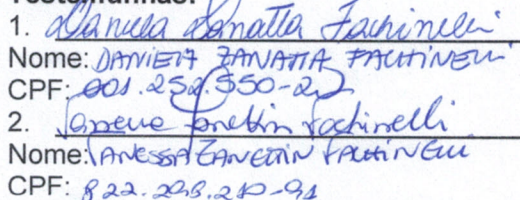 Testemunhas:
1. Daniela Zanatta Fachinelli
Nome: DANIELA ZANATTA FACHINELLI
CPF: 001.252.550-2
2. Vanessa Zanettin Fachinelli
Nome: VANESSA ZANETTIN FACHINELLI
CPF: 822.293.210-91